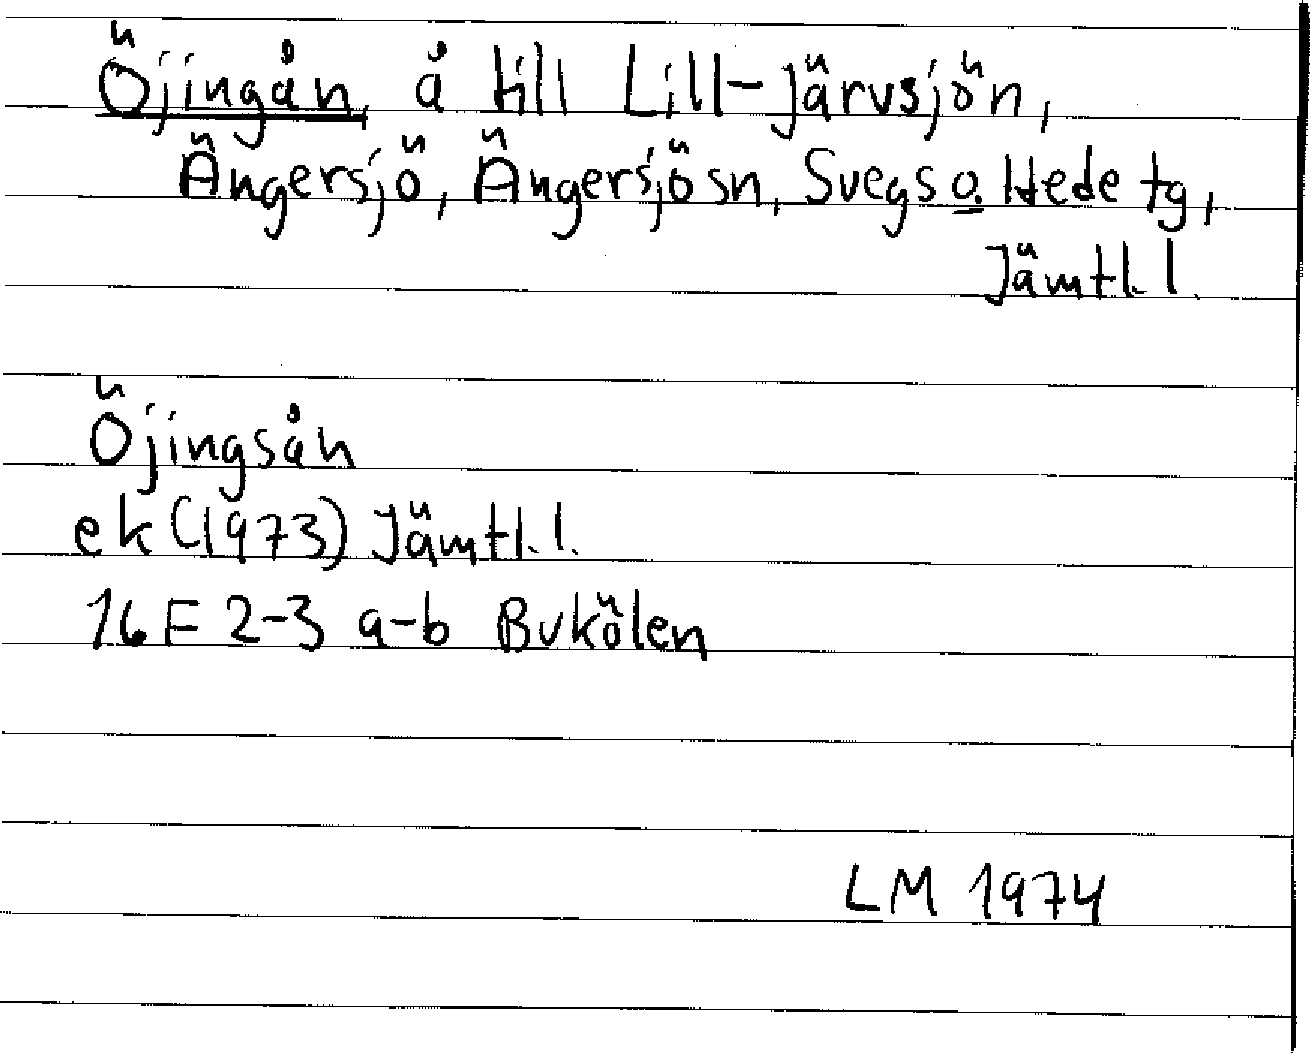 Öjingån, å till Lill-Järvsjön,
Ängersjö, Ängersjö sn, Svegs o. Hede tg,
Jämtl. l.
Öjingsån
ek (1973) Jämtl. l.
16 F 2-3 a-b Bukölen
LM 1974